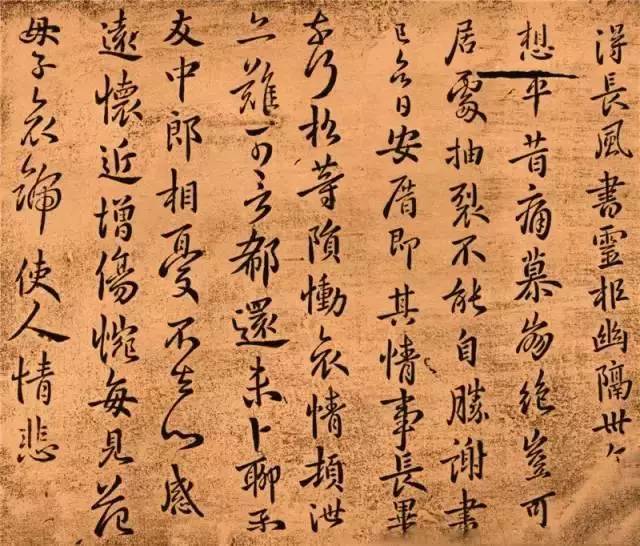 得長風書靈柩幽隔卅
想平昔痛慕崩絶豈可
居處抽裂不能自勝謝書
已日安厝即其情事長畢
奈何松等隕慟哀情頓泄
亦難可言郗還未卜聊示
友中郎相憂不去心感
遠懷近增傷惋每見范
母子哀號使人情悲